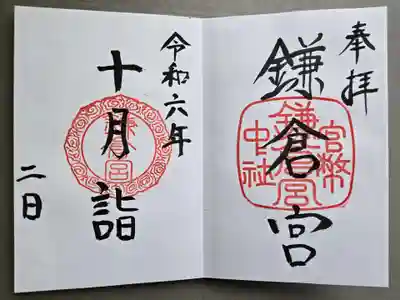 奉拝
鎌倉宮
官幣中社
鎌倉宮
令和六年
十月詣
鎌倉宮
二日